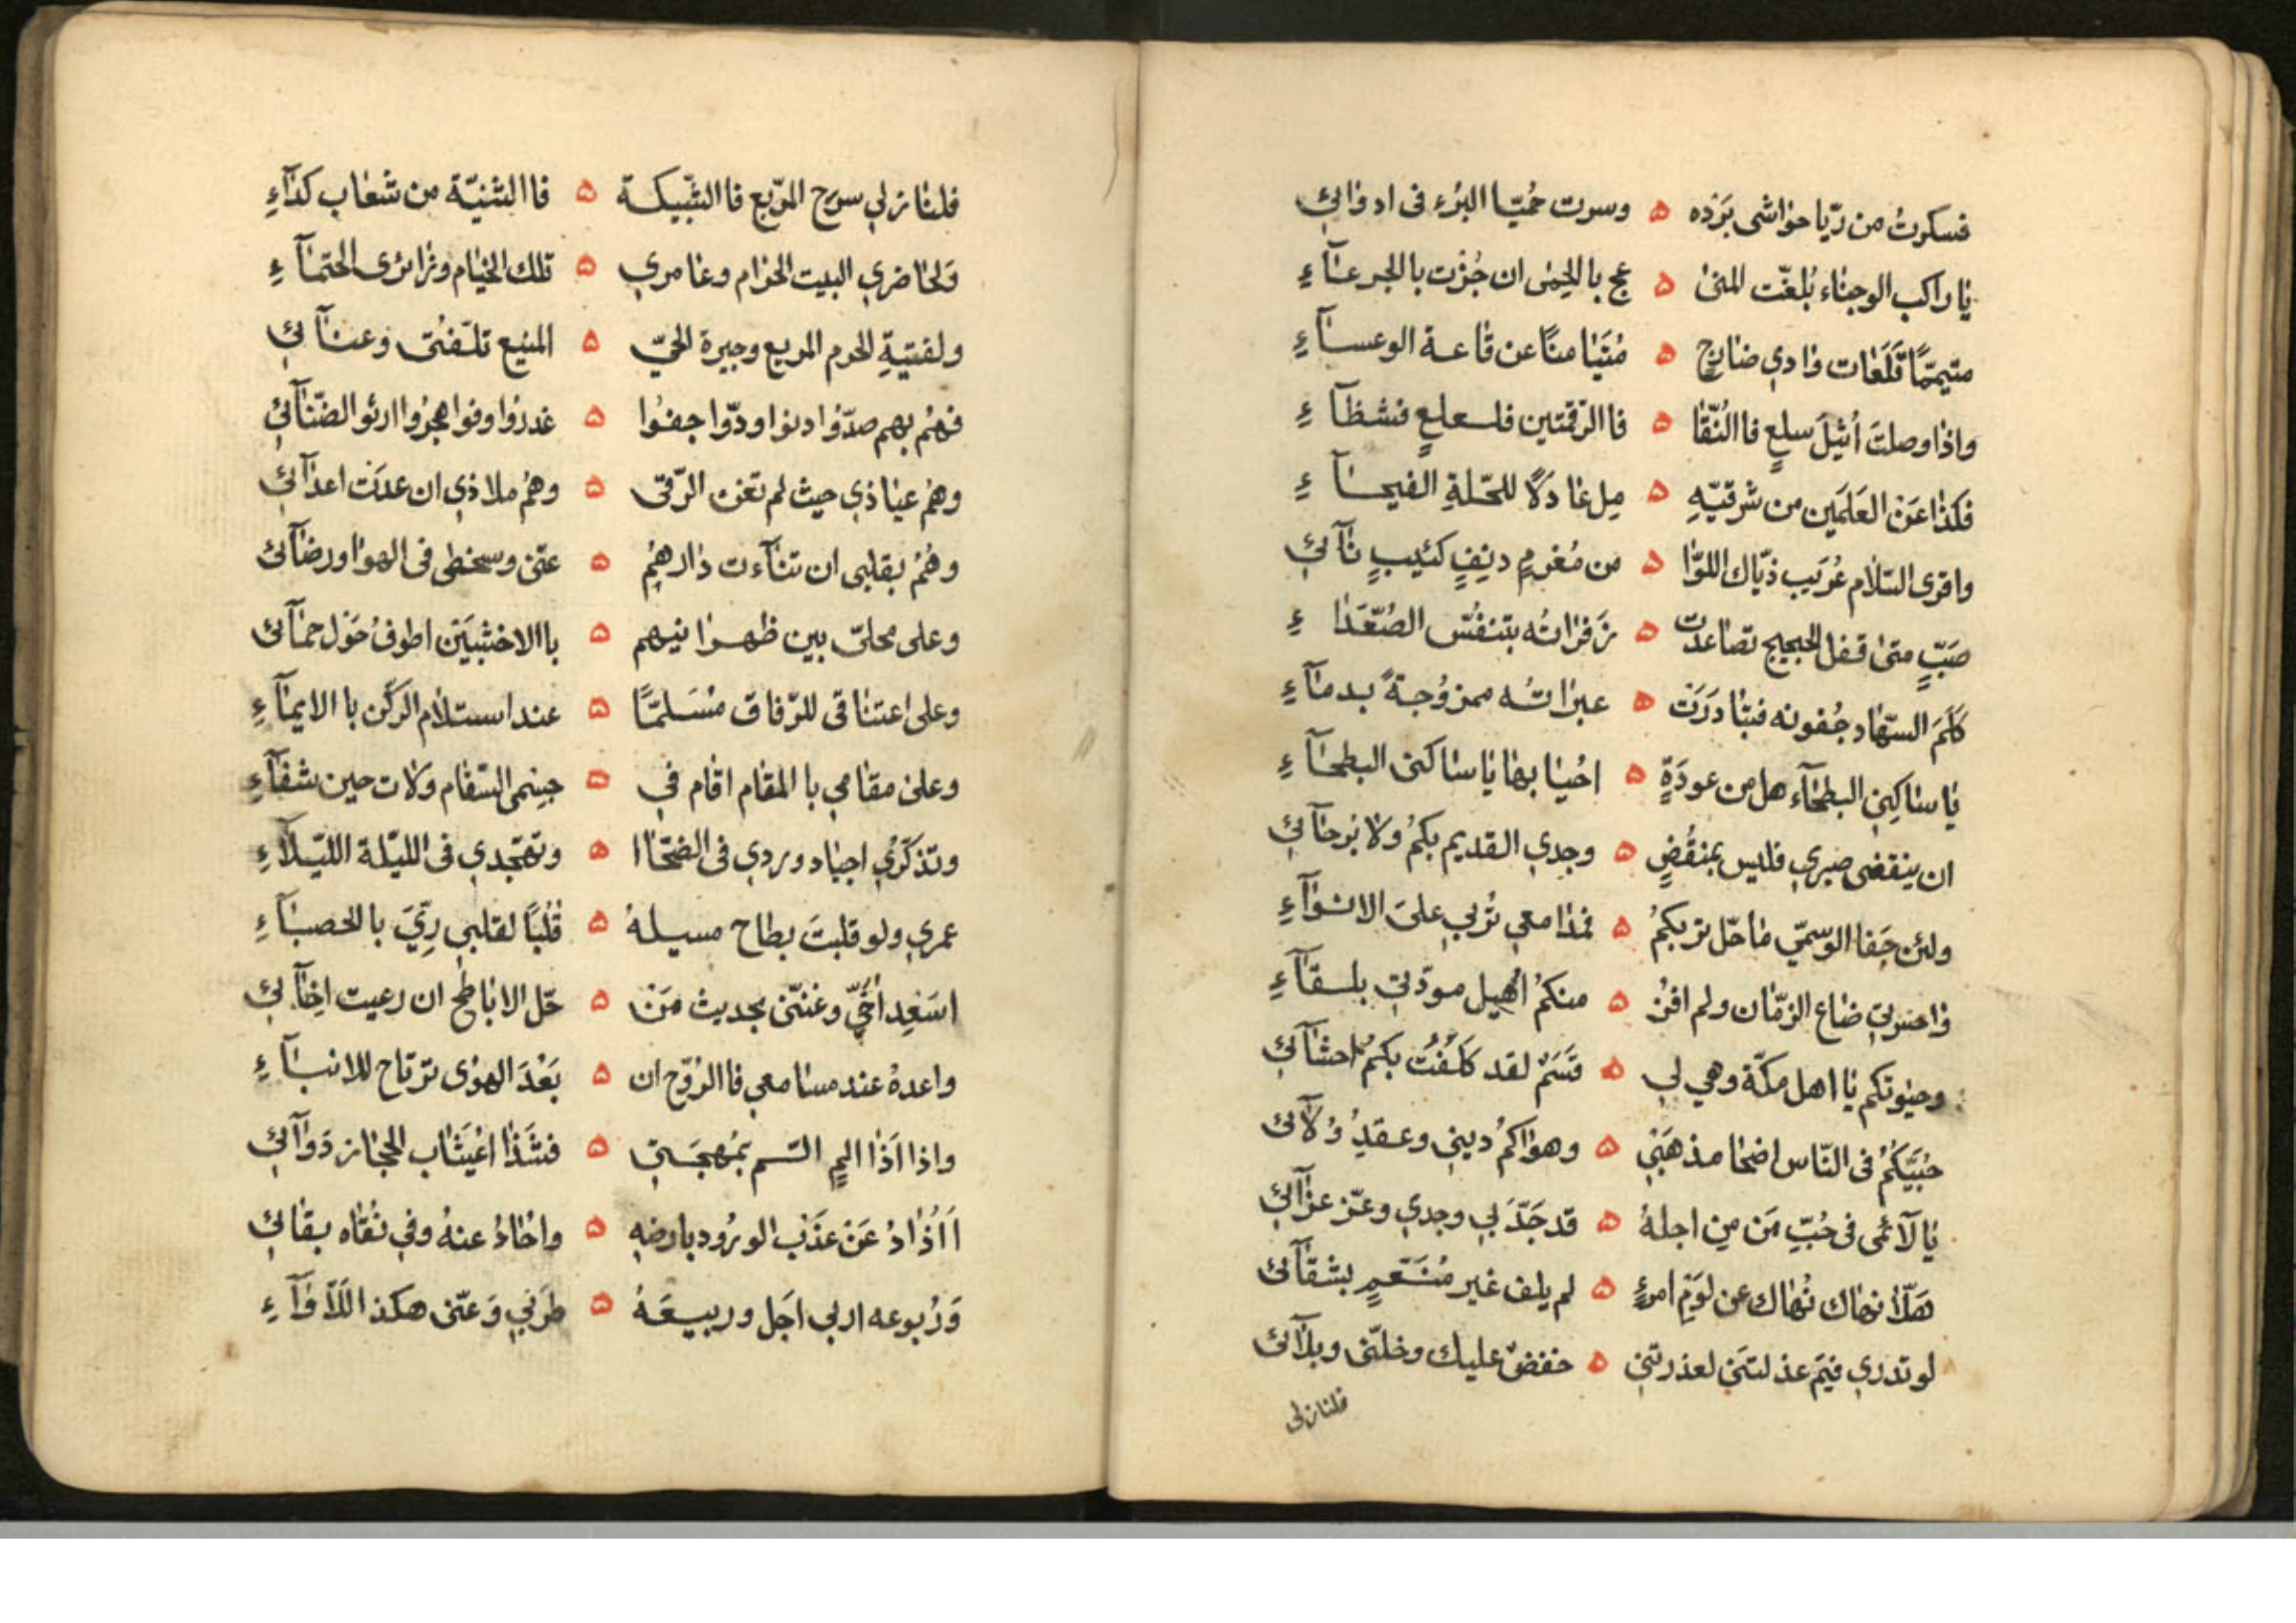 فسكرتُ من ريّا حواشى بَرْده ۵ وسرت حُميّا البُرْء فى ادوائى
يا راكب الوجناء بُلغّت المنىٰ ۵ عج بالحِمٰى ان جُزْت بالجرعآءِ
متيممًّا تَلَعَات وادي ضارج ۵ مُتَيَامنًا عن قاعة الوعسآءِ
واذا وصلتَ أُثيلَ سلعٍ فاالنّقا ۵ فاالرقمتين فلعلعٍ فشظآءِ
فكذا عَن العَلَمَين من شرقيّهِ ۵ مِل عادلًا للحلّةِ الفيحآءِ
واقرى السّلام عُرَيب ذيّاك اللوّا ۵ من مُغرمٍ دنِفٍ كئيبٍ نآئى
صَبٍّ متىٰ قفل الحجيج تصاعدت ۵ زَفراتُه بتنفّس الصُعّدَاءِ
كَلَمَ السّهاد جُفونه فتبادرَت ۵ عبراتُه ممزوُجةً بدمآءِ
يا ساكِنى البطحآء هل من عودَةٍ ۵ احْيا بها يا ساكنى البطحآءِ
ان ينقضى صبري فليس بمنقُضٍ ۵ وجدي القديم بكمُ ولا بُرحآئى
ولئن جَفا الوسمّي ماحل تربكمُ ۵ فمدامعى تُربي علىَ الانوآءِ
واحسرتي ضاع الزمّان ولم افزُ ۵ منكمُ اُهيل مودّتي بلقآءِ
وحيٰوتكم يا اهل مكّة وهي لى ۵ قَسَمٌ لقد كَلِفَت بكمُ احشآئى
حُبَيّكُمُ فى النّاس اضحا مذهَبي ۵ وهواكمُ ديني وعقدِ وُلآئى
يا لآئمى فى حُبّ مَن مِن اجلهُ ۵ قد جَدّ بي وجدي وعزّ عزآئى
هَلّا نهاك نُهاك عن لوَمِ امرءٍ ۵ لم يلف غير مُنَعَمٍ بشقآئى
لو تدري فيَم عذلتنَي لعذرتني ۵ خفض عليك وخلّنى وبلآئى
فلنازلى
فلنازلي سرح المربّع فاالشبّيكة ۵ فاالثنيّة من شعاب كدآءِ
وَلحاضري البيت الحرام وعامري ۵ تلك الخيام وزائرى الحثمآءِ
ولفتيةِ الحرم المريع وجيرة الحيّ ۵ المنيع تلفّتى وعنآئى
فهُم بهم صدّوا دنوا ودّوا جفوُا ۵ غدروا وفوا هجرُوا ارثو الضّنآئى
وهمُ عياذي حيث لم تغن الرّقى ۵ وهمُ ملاذي ان عدَت اعدآئى
وهُمُ بقلبى ان تنآءت دارهمُ ۵ عنّى وسخطى فى الهوا ورضآئى
وعلى محلىّ بين ظهرانيهم ۵ باالاخشبيَن اطوفُ حَوْل حمآئى
وعلى اعتناقى للرّفاق مُسَلمًّا ۵ عند استلام الركّن باالايمآءِ
وعلى مقامي باالمقام اقام في ۵ جسمى السّقام ولات حين شفآءِ
وتذكّرُي اجياد وردي فى الضحّاا ۵ وتهجّدي فى الليّلة الليّلآءِ
عمري ولو قلبتَ بطاح مسيلهُ ۵ قُلُبًا لقلبي رِيّيَ باالحصبآءِ
اسَعِد اُخَيّ وغنّنى بحديث مَن ۵ حلّ الاباطح ان رعيت اخِآئى
واعدهُ عند مسامعي فاالروُّح ان ۵ بَعْدَ الهوٰى ترتاح للانبآءِ
واذا اَذٰا اليمٍ المّـ بمُهجَتي ۵ فشَذا اعُيشاب الحجاز دَوآئى
اَاُذادُ عَن عَذب الورُود بارضهِ ۵ واحُادُ عنهُ وفي نُقاه بقائى
وَرُبوعه اربي اجَل وربيعَهُ ۵ طرَبي وَعنّى هكذا الَلأوآءِ